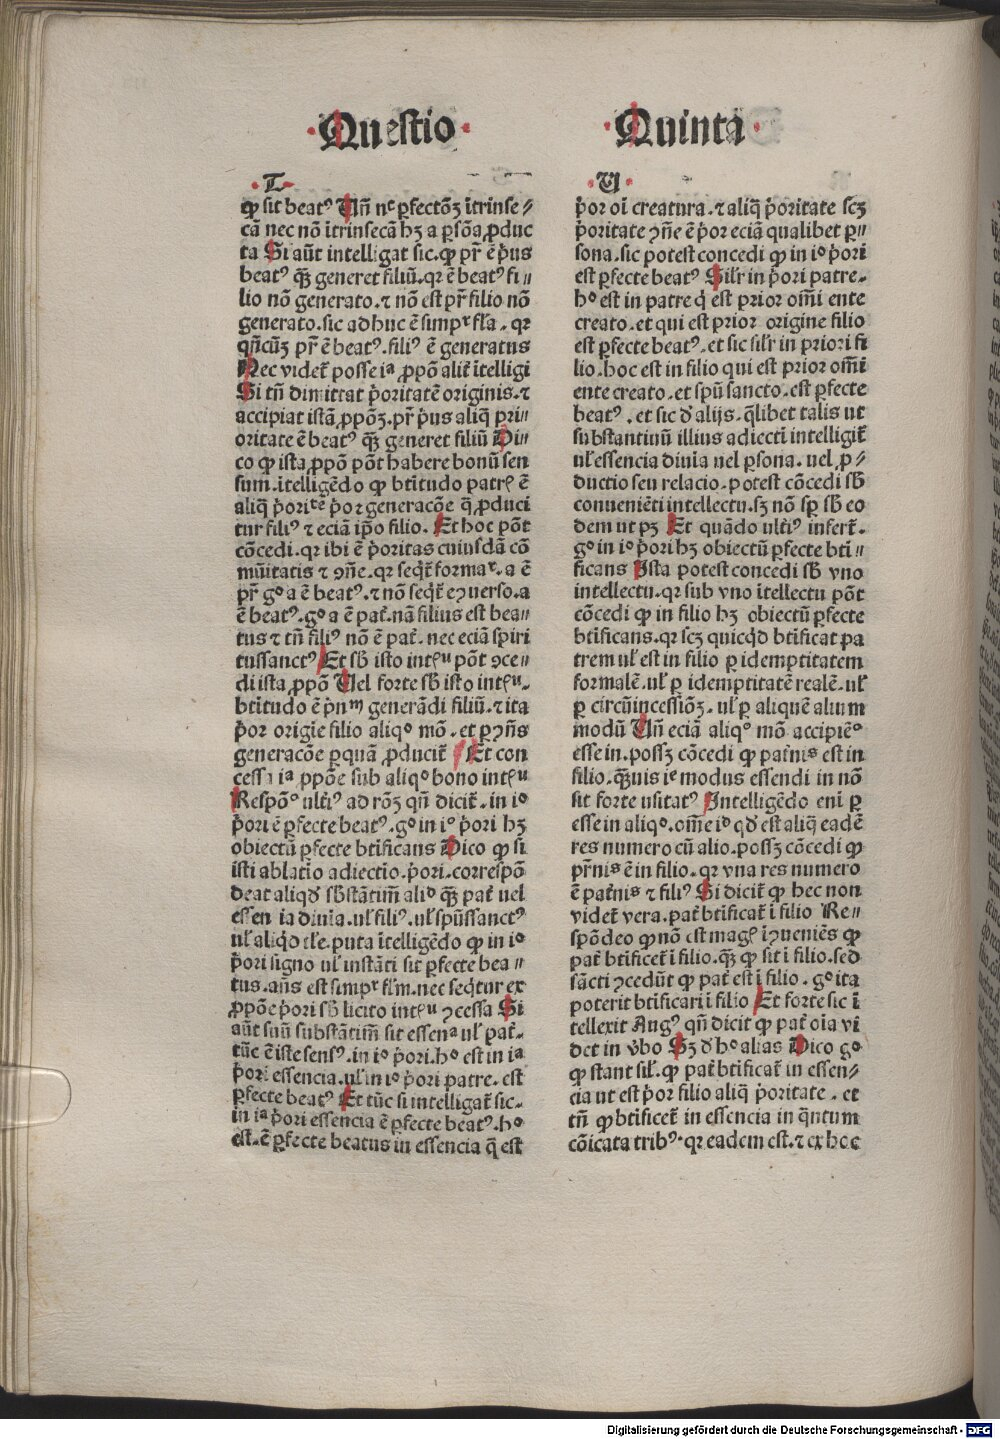 ·Questio·
·Quinta·
·T·
ꝙ sit beatꝰ Uñ nᶜ ꝑfectõꝫ ĩtrinse⸗
cã nec nõ ĩtrinsecã hꝫ a ꝑsõa ꝓduc
ta Si aũt intelligat sic. ꝙ pr̃ ẽ ṗus
beatꝰ qꝫ̃ generet filiũ. qꝛ ẽ beatꝰ fi⸗
lio nõ generato. ⁊ nõ est pr̃ filio nõ
generato. sic adhuc ẽ simpʳ fl̃a. qꝛ
qñcũꝫ pr̃ ẽ beatꝰ. filiꝰ ẽ generatus
Nec videt̃ posse iᵃ ꝓpõ alit̃ ĩtelligi
Si tñ dimittat ṗoritatẽ originis. ⁊
accipiat istã ꝓpõꝫ. pr̃ ṗus aliq̃ pri⸗
oritate ẽ beatꝰ qꝫ̃ generet filiũ Di⸗
co ꝙ ista ꝓpõ põt habere bonũ sen
sum. ĩtelligẽdo ꝙ btĩtudo patrꝭ ẽ
aliq̃ ṗoriᵗᵉ ṗor generacõe q̃ ꝓduci
tur filiꝰ ⁊ eciã ip̃o filio. Et hoc põt
cõcedi. qꝛ ibi ẽ ṗoritas cuiusdã cõ
mũitatis ⁊ ꝯñe. qꝛ seqt̃ formaʳ. a ẽ
pr̃ gᵒ a ẽ beatꝰ. ⁊ nõ seqt̃ eꝯuerso. a
ẽ beatꝰ. gᵒ a ẽ pat̃. nã filius est bea⸗
tus ⁊ tñ filiꝰ nõ ẽ pat̃. nec eciã spiri
tussanctꝰ Et sb̃ isto intꝭᵘ põt ꝯce⸗
di ista ꝓpõ Uel forte sb̃ isto intꝭᵘ.
btĩtudo ẽ ṗnᵐ generãdi filiũ. ⁊ ita
ṗor origĩe filio aliqᵒ mõ. et ꝑꝯñs
generacõe ꝑ quã ꝓducit̃ Et con
cessa iᵃ ꝓpõe sub aliqᵒ bono intꝭᵘ
Respõᵒ ultĩꝰ ad rõꝫ qñ dicit̃. in iᵒ
ṗori ẽ ꝑfecte beatꝰ. gᵒ in iᵒ ṗori hꝫ
obiectũ ꝑfecte btificans Dico ꝙ si
isti ablatiõ adiectio. ṗori. correspõ
deat aliqd̃ sb̃stãtim̃ aliᵈ qꝫ̃ pat̃ uel
essen ia diuĩa. ul̃ filiꝰ. ul̃ spũssanctꝰ
ul̃ aliq̃d tl̃e. puta ĩtelligẽdo ꝙ in iᵒ
ṗori signo ul̃ instãti sit ꝑfecte bea⸗
tus. añs est simpʳ fl̃m. nec seq̃tur ex
ꝓpõe ṗori sb̃ licito intꝭᵘ ꝯcessa Si
aũt suũ substãtim̃ sit essenᵃ ul̃ pat̃.
tũc ẽ iste sensꝰ. in iᵒ ṗori. hᵒ est in iᵃ
ṗori essencia. ul̃ in iᵒ ṗori patre. est
ꝑfecte beatꝰ Et tũc si intelligat̃ sic.
in iᵃ ṗori essencia ẽ ꝑfecte beatꝰ. hᵒ
est. ẽ ꝑfecte beatus in essencia q̃ est
·U·
ṗor oĩ creatura. ⁊ aliq̃ ṗoritate scꝫ
ṗoritate ꝯñe ẽ ṗor eciã qualibet ꝑ⸗
sona. sic potest concedi ꝙ in iᵒ ṗori
est ꝑfecte beatꝰ Sil̃r in ṗori patre.
hᵒ est in patre q̇ est prior om̃i ente
creato. et qui est prior origine filio
est ꝑfecte beatꝰ. et sic sil̃r in priori fi
lio. hoc est in filio qui est prior om̃i
ente creato. et spũ sancto. est ꝑfecte
beatꝰ. et sic d̃ alijs. q̃libet talis ut
substantiuũ illius adiecti intelligit̃
ul̃ essencia diuĩa uel ꝑsona. uel ꝓ⸗
ductio seu relacio. potest cõcedi sb̃
conueniẽti intellectu. sꝫ nõ sꝑ sb̃ eo
dem ut pꝫ Et quãdo ultĩꝰ infert̃.
gᵒ in iᵒ ṗori hꝫ obiectũ ꝑfecte bti⸗
ficans Ista potest concedi sb̃ vno
intellectu. qꝛ sub vno ĩtellectu põt
cõcedi ꝙ in filio hꝫ obiectũ ꝑfecte
btificans. qꝛ scꝫ quicq̇d btificat pa
trem ul̃ est in filio ꝑ idemptitatem
formalẽ. ul̃ ꝑ idemptitatẽ realẽ. ul̃
ꝑ circũincessiõꝫ. ul̃ ꝑ aliquẽ alium
modũ Uñ eciã aliqᵒ mõ accipiẽᵒ
esse in. possꝫ cõcedi ꝙ pat̃nⁱˢ est in
filio. qꝫ̃uis iᵉ modus essendi in nõ
sit forte usitatꝰ Intelligẽdo eni ꝑ
esse in aliqᵒ. om̃e iᵈ qd̃ est aliq̃ eadẽ
res numero cũ alio. possꝫ cõcedi ꝙ
pr̃nⁱˢ ẽ in filio. qꝛ vna res numero
ẽ pat̃nⁱˢ ⁊ filiꝰ Si dicit̃ ꝙ hec non
videt̃ vera. pat̃ btificat̃ ĩ filio Re⸗
spõdeo ꝙ nõ est magꝭ ĩꝯueniẽs ꝙ
pat̃ btificet̃ ĩ filio. qꝫ̃ ꝙ sit ĩ filio. sed
sãcti ꝯcedũt ꝙ pat̃ est ĩ filio. gᵒ ita
poterit btificari ĩ filio Et forte sic ĩ
tellexit Augꝰ qñ dicit ꝙ pat̃ oĩa vi
det in v̾bo Sꝫ d̃ hᵒ alias Dico gᵒ
ꝙ stant sil̃. ꝙ pat̃ btificat̃ in essen⸗
cia ut est ṗor filio aliq̃ ṗoritate. et
tñ ꝙ btificet̃ in essencia in q̃ntum
cõicata tribꝰ. qꝛ eadem est. ⁊ ex hoc
Digitalisierung gefördert durch die Deutsche Forschungsgemeinschaft - DFG